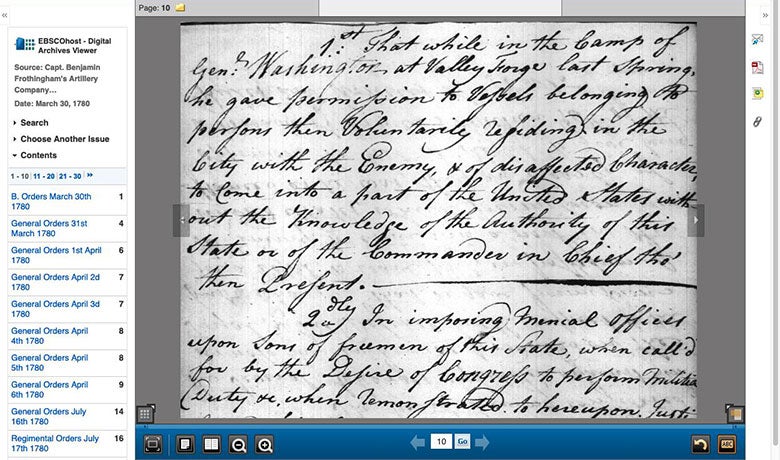 Page: 10
EBSCOhost - Digital
Archives Viewer
Source: Capt. Benjamin
Frothingham's Artillery
Company...
Date: March 30, 1780
Search
Choose Another Issue
Contents
1 - 10 11 - 20 21 - 30
B. Orders March 30th 1
1780
General Orders 31st 4
March 1780
General Orders 1st April 6
1780
General Orders April 2d 7
1780
General Orders April 3d 7
1780
General Orders April 8
4th 1780
General Orders April 8
5th 1780
General Orders April 9
6th 1780
General Orders July 14
16th 1780
Regimental Orders July 16
17th 1780
1:st That while in the Camp of
Genl. Washington at Valley Forge last Spring,
he gave permission to Vessels belonging to
persons then Voluntarily residing in the
City with the Enemy, & of disaffected Character,
to Come into a part of the United States with
out the Knowledge of the Authority of this
State or of the Commander in Chief tho'
then Present.
2dly In imposing Menial Offices
upon Sons of freemen of this State, when call'd
for by the Desire of Congress to perform Militia
Duty &c, when remonstrated to hereupon
10
Go
ABC